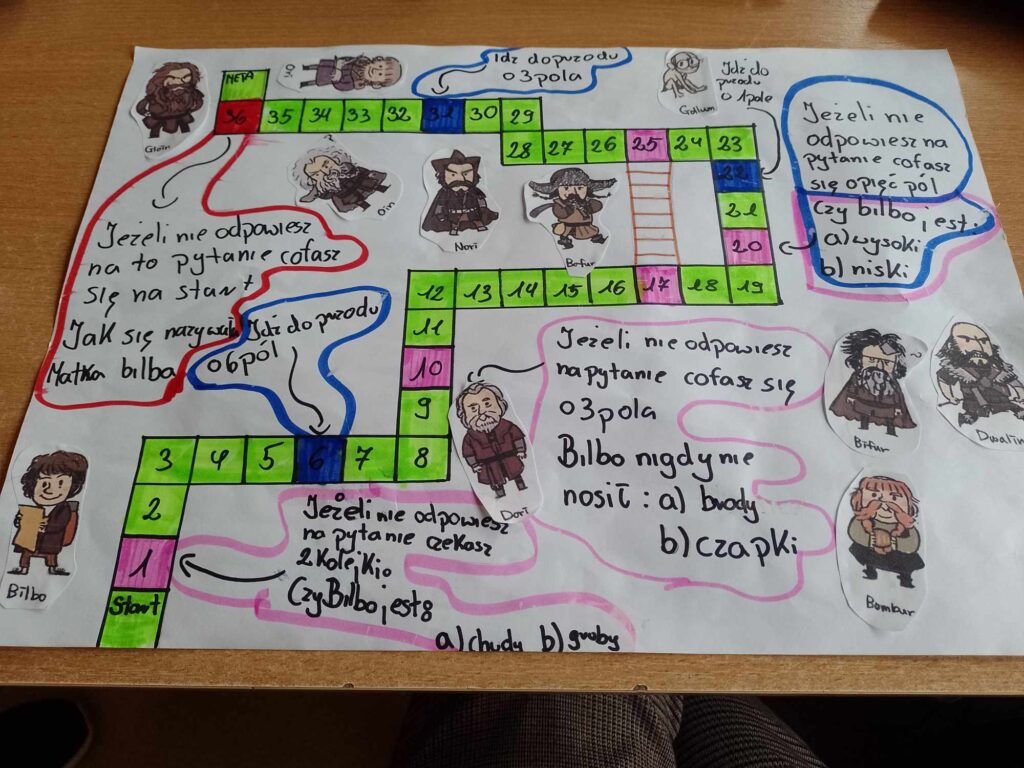 META
36 35 34 33 32 31 30 29
28 27 26 25 24 23
22
21
20
12 13 14 15 16 17 18 19
11
10
9
3 4 5 6 7 8
2
1
Start
Idź do przodu
o 3 pola
Idź do
przodu
o 1 pole
Jeżeli nie
odpowiesz na
pytanie cofasz
się o pięć pól
Czy bilbo jest:
a) wysoki
b) niski
Jeżeli nie odpowiesz
na to pytanie cofasz
się na start
Jak się nazywała
Matka bilba
Idź do przodu
o 6 pól
Jeżeli nie odpowiesz
na pytanie cofasz się
o 3 pola
Bilbo nigdy nie
nosił: a) brody
b) czapki
Jeżeli nie odpowiesz
na pytanie czekasz
2 kolejki
Czy Bilbo jest:
a) chudy b) gruby
Gloin
Ori
Gollum
Oin
Nori
Bofur
Bifur
Dwalin
Dori
Bombur
Bilbo